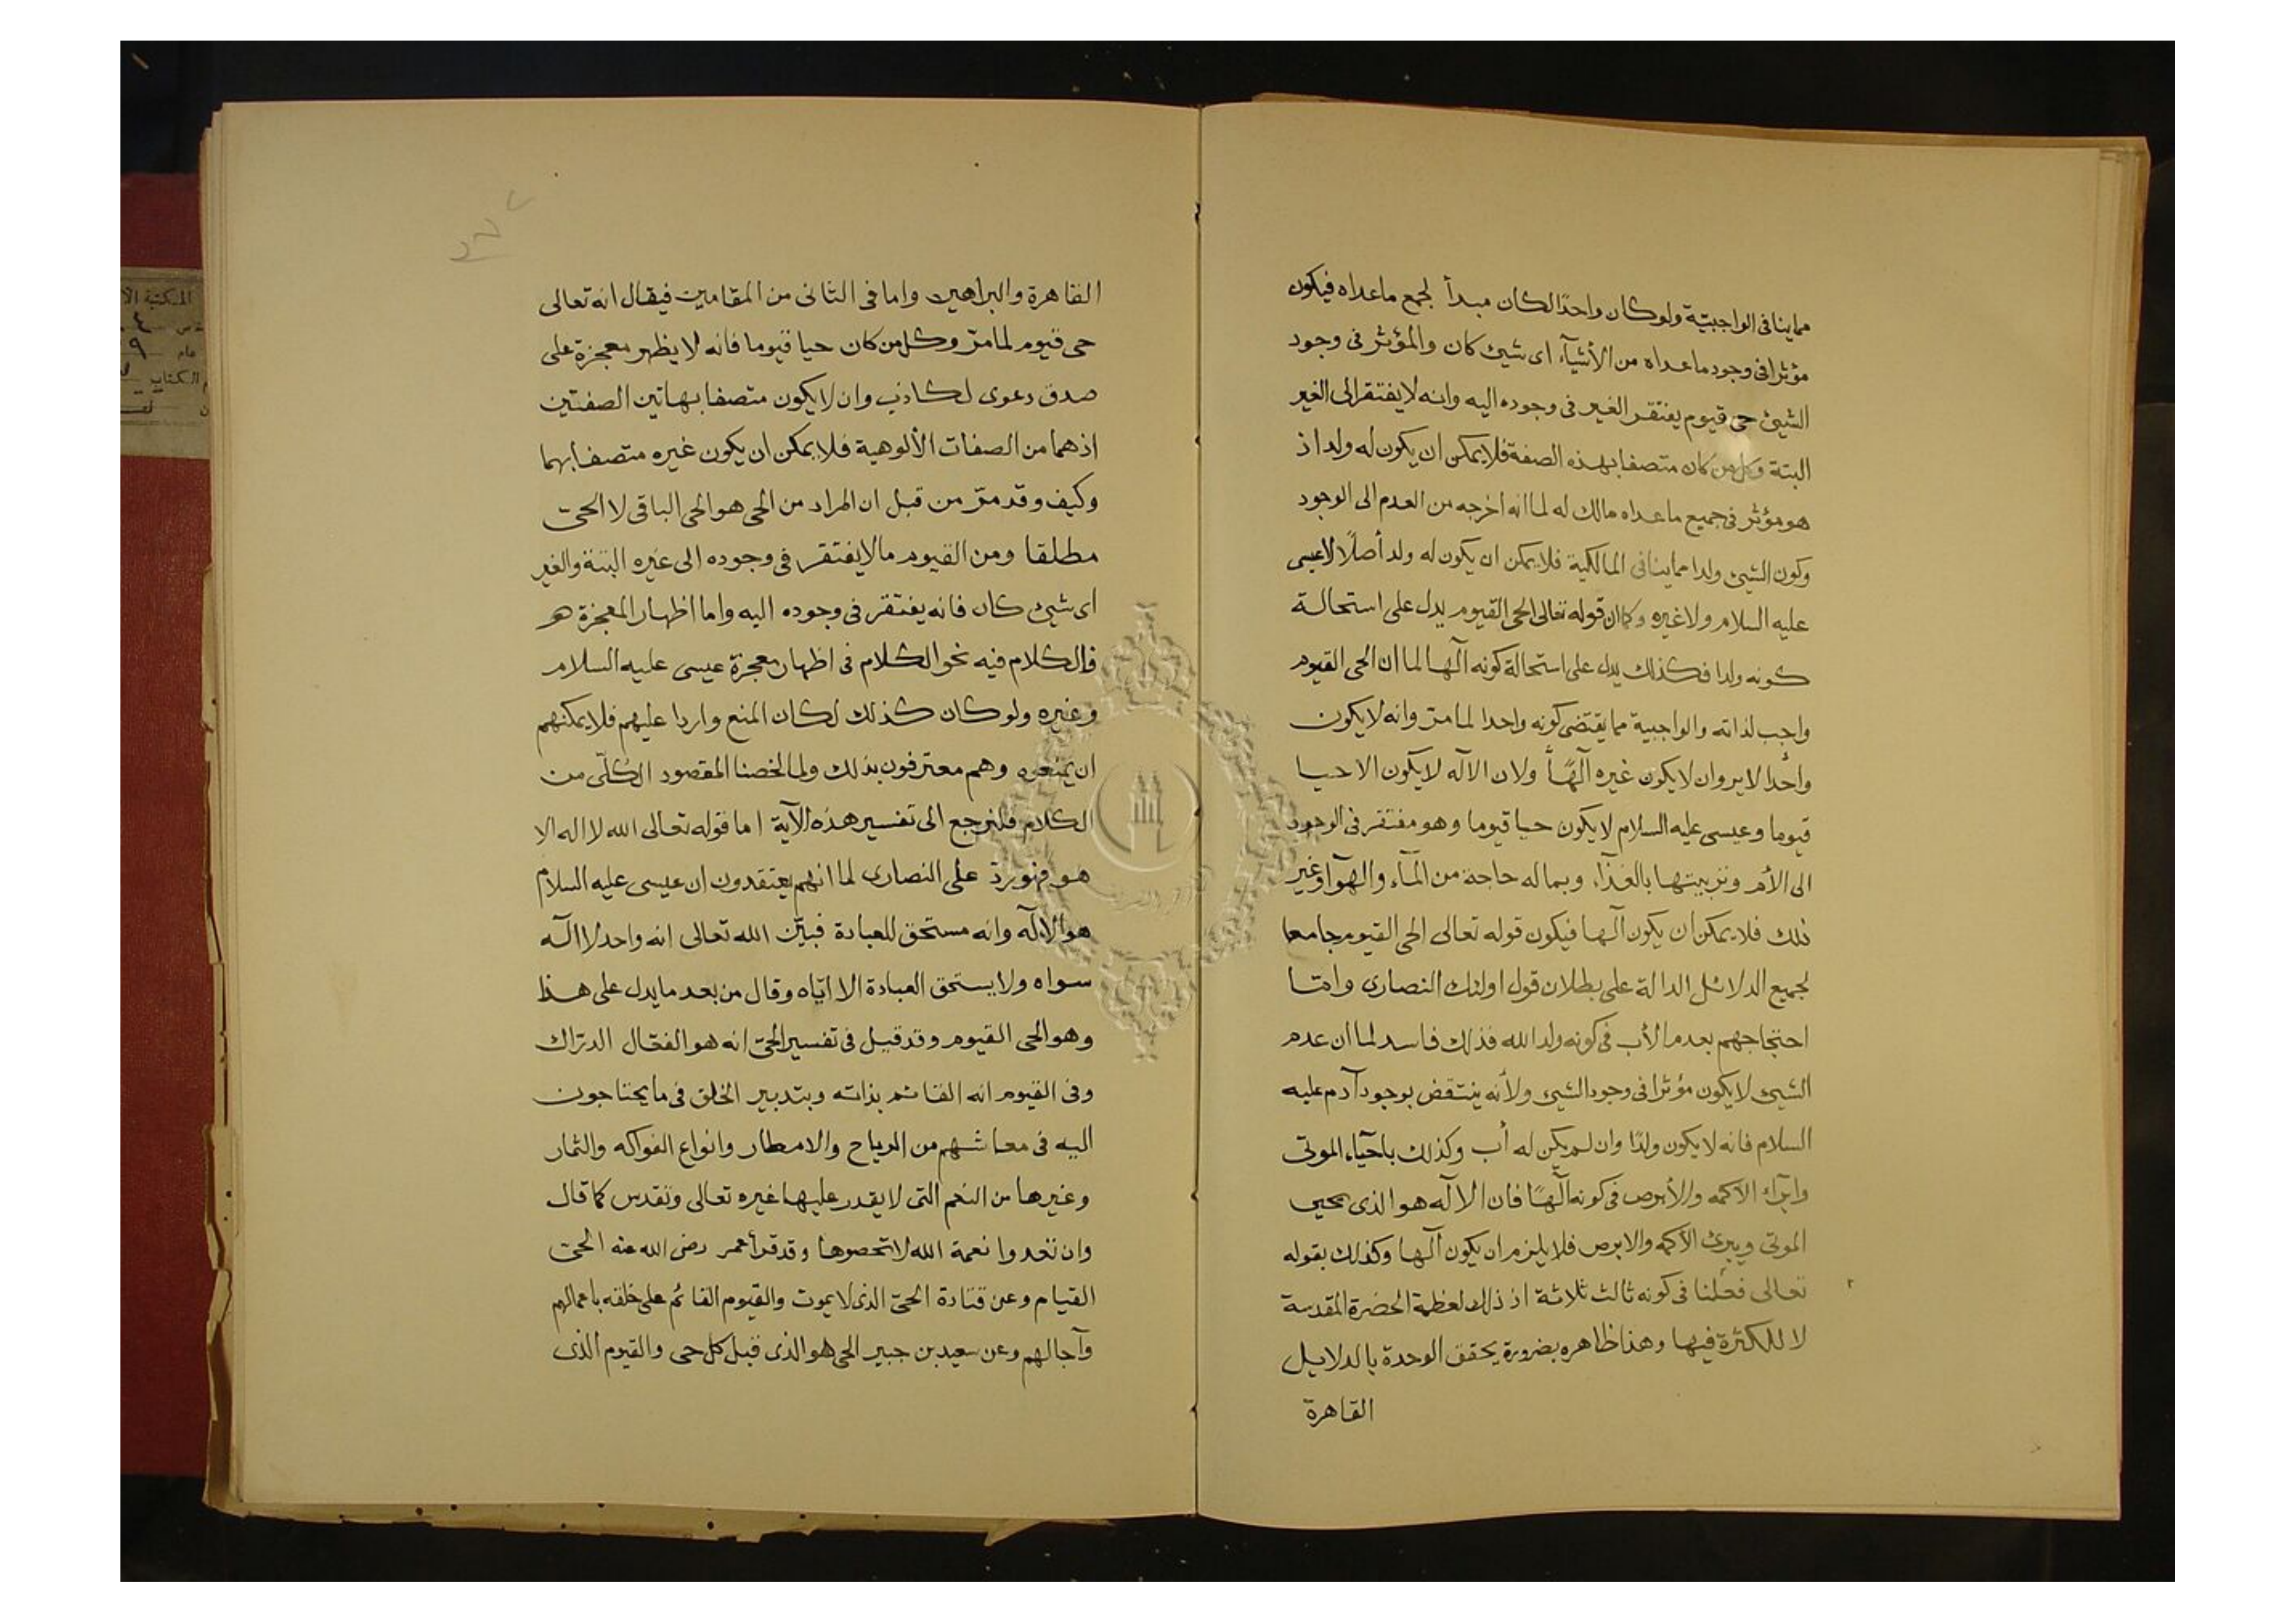 مماينافى الواجبيّة ولوكان واحدًا لكان مبدأ لجمع ماعداه فيكون
مؤثرا فى وجود ماعداه من الأشيآء اى شيئ كان والمؤثر فى وجود
الشيئ حى قيوم يفتقر الغير فى وجوده اليه وانه لايفتقر الى الغير
البتة وكل من كان متصفا بهذه الصفة فلايمكن ان يكون له ولد اذ
هو مؤثر فى جميع ماعداه مالك له لما انه اخرجه من العدم الى الوجود
وكون الشيئ ولدا مماينافى المالكية فلايمكن ان يكون له ولد أصلًا لاعيسى
عليه السلام ولا غيره وكما ان قوله تعالى الحى القيوم يدل على استحالة
كونه ولدا فكذلك يدل على استحالة كونه آلها لما ان الحى القيوم
واجب لذاته والواجبية مما يقتضى كونه واحدا لما مرّ وانه لايكون
واحدا الا بر وان لايكون غيره آلهًا ولان الآله لايكون الا حيا
قيوما وعيسى عليه السلام لايكون حيا قيوما وهو مفتقر فى الوجود
الى الأم وتربيتها بالغذآء وبماله حاجة من المآء والهوآء وغير
ذلك فلايمكن ان يكون آلها فيكون قوله تعالى الحى القيوم جامعا
لجميع الدلائل الدالة على بطلان قول اولئك النصارى وامّا
احتجاجهم بعدم الأب فى كونه ولدا لله فذلك فاسد لما ان عدم
الشيئ لايكون مؤثرا فى وجود الشيئ ولأنه ينتقض بوجود آدم عليه
السلام فانه لايكون ولدًا وان لم يكن له أب وكذلك باحيآء الموتى
وابرآء الاكمه والأبرص فى كونه آلهًا فان الآله هو الذى يحيى
الموتى ويبرئ الأكمه والابرص فلايلزم ان يكون آلها وكذلك بقوله
تعالى فعلنا فى كونه ثالث ثلاثة اذ ذلك لعظمة الحضرة المقدسة
لا للكثرة فيها وهذا ظاهره بضرورة يحقق الوحدة بالدلايل
القاهرة
القاهرة والبراهين واما فى الثانى من المقامين فيقال انه تعالى
حى قيوم لما مرّ وكل من كان حيا قيوما فانه لا يظهر معجزة على
صدق دعوى لكاذب وان لايكون متصفا بهاتين الصفتين
اذ هما من الصفات الألوهية فلا يمكن ان يكون غيره متصفا بهما
وكيف وقد مرّ من قبل ان المراد من الحى هو الحى الباقى لا الحىّ
مطلقا ومن القيوم مالايفتقر فى وجوده الى غيره البتة والغير
اى شيئ كان فانه يفتقر فى وجوده اليه واما اظهار المعجزة هو
فالكلام فيه نحو الكلام فى اظهار معجزة عيسى عليه السلام
وغيره ولوكان كذلك لكان المنع واردا عليهم فلايمكنهم
ان يمنعوه وهم معترفون بذلك ولما لخصنا المقصود الكلّى من
الكلام فلنرجع الى تفسير هذه الآية اما قوله تعالى الله لا اله الا
هو فهو يردّ على النصارى لما انهم يعتقدون ان عيسى عليه السلام
هو الاله وانه مستحق للعبادة فبيّن الله تعالى انه واحد لا اله
سواه ولايستحق العبادة الا ايّاه وقال من بعد مايدل على هذا
وهو الحى القيوم وقد قيل فى تفسير الحىّ انه هو الفعّال الدرّاك
وفى القيوم انه القائم بذاته وبتدبير الخلق فى ما يحتاجون
اليه فى معاشهم من الرياح والامطار وانواع الفواكه والثمار
وغيرها من النعم التى لا يقدر عليها غيره تعالى وتقدس كما قال
وان تعدوا نعمة الله لاتحصوها وقد قرأ عمر رضى الله عنه الحىّ
القيام وعن قتادة الحىّ الذى لايموت والقيوم القائم على خلقه باعمالهم
وآجالهم وعن سعيد بن جبير الحى هو الذى قبل كل حى والقيوم الذى